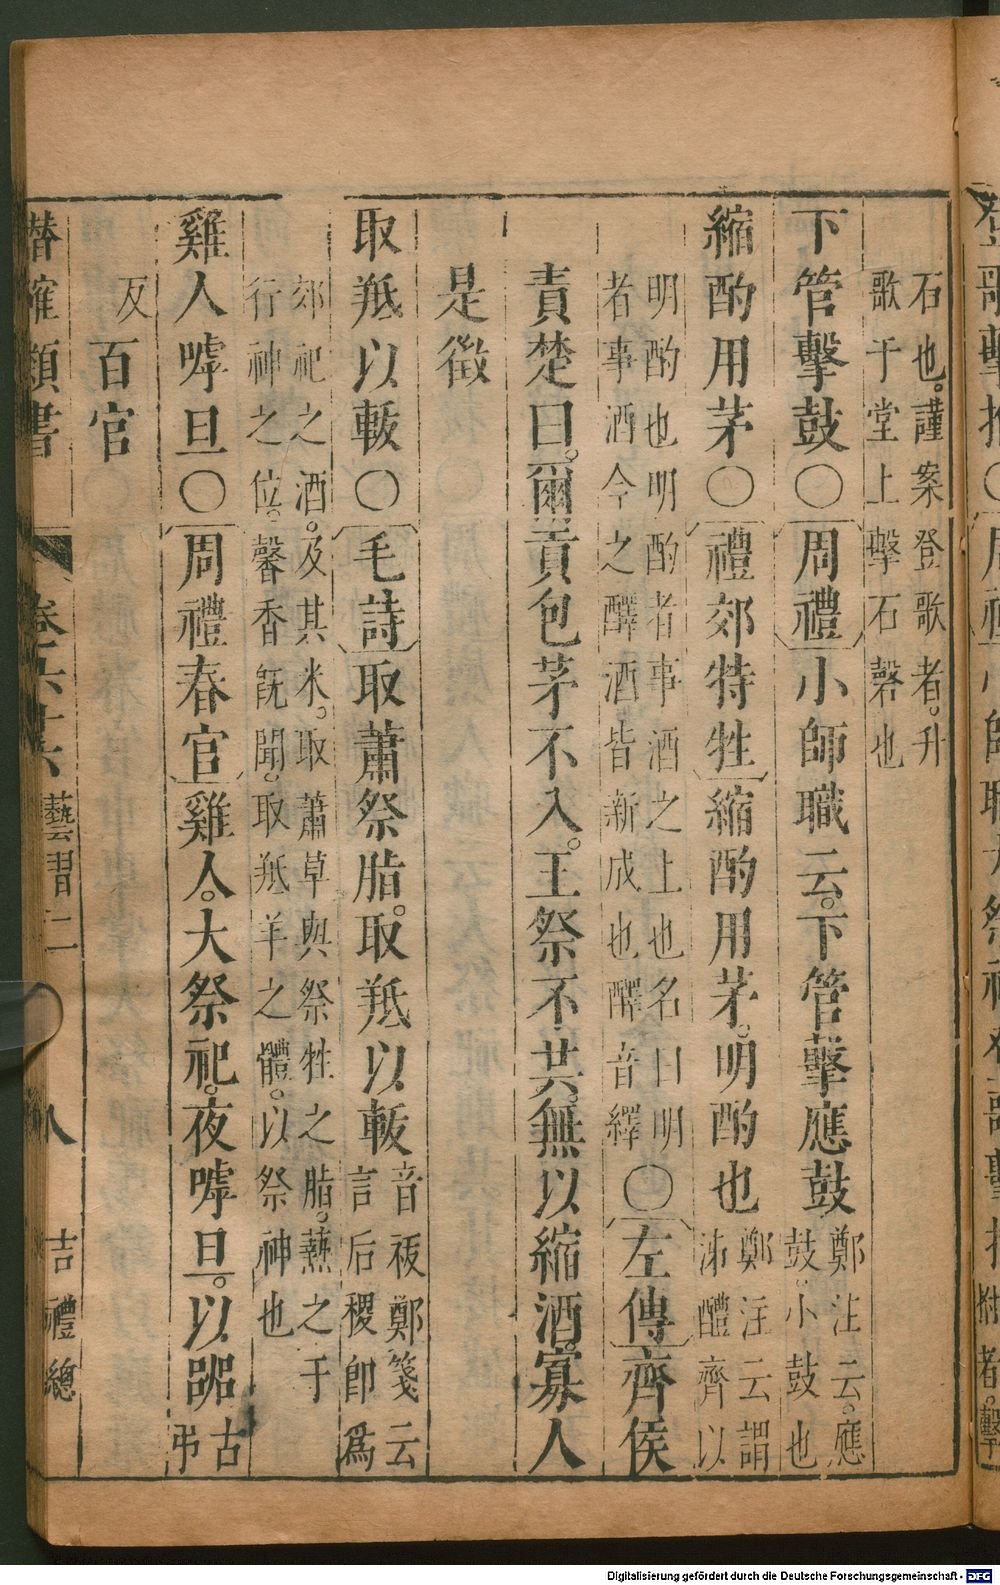 石也。謹案登歌者。升
歌于堂上擊石磬也
下管擊鼓〇周禮小師職云。下管擊應鼓
鄭注云。應
鼓。小鼓也
縮酌用茅〇禮郊特牲縮酌用茅。明酌也
鄭注云謂
泲醴齊以
明酌也明酌者事酒之上也名曰明
者事酒今之醳酒皆新成也醳音繹
〇左傳齊侯
責楚曰。爾貢包茅不入。王祭不共。無以縮酒。寡人
是徵
取羝以軷〇毛詩取蕭祭脂。取羝以軷
音祓鄭箋云
言后稷卽爲
郊祀之酒。及其米。取蕭草與祭牲之脂。爇之于
行神之位。馨香旣聞。取羝羊之體。以祭神也
雞人嘑旦〇周禮春官雞人。大祭祀。夜嘑旦。以嘂
古
弔
反
百官
潛確類書
卷六十六
藝習二
八
吉禮總
Digitalisierung gefördert durch die Deutsche Forschungsgemeinschaft - DFG